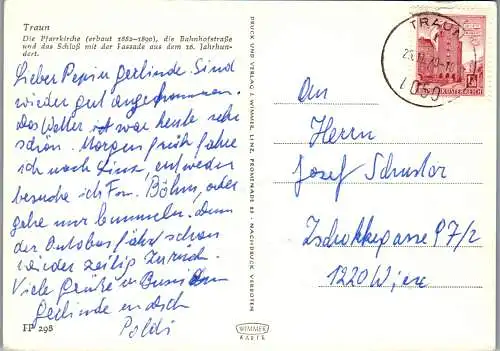 Traun
Die Pfarrkirche (erbaut 1882–1890), die Bahnhofstraße
und das Schloß mit der Fassade aus dem 16. Jahrhun-
dert.
Lieber Pepi u Gerlinde. Sind
wieder gut angekommen.
Das Wetter ist war heute sehr
schön. Morgen früh fahre
ich nach Linz, entweder
besuche ich Fr. Böhm, oder
gehe nur bummeln. Denn
der Autobus fährt schon
wieder zeitig zurück.
Viele Grüße u Bussi
Gerlinde u dich
Poldi
FP 298
DRUCK UND VERLAG: WIMMER, LINZ, PROMENADE 23 · NACHDRUCK VERBOTEN
WIMMER
KARTE
TRAUN
4050
REPUBLIK ÖSTERREICH
An
Herrn
Josef Schuster
Zschokkegasse 97/2
1220 Wien